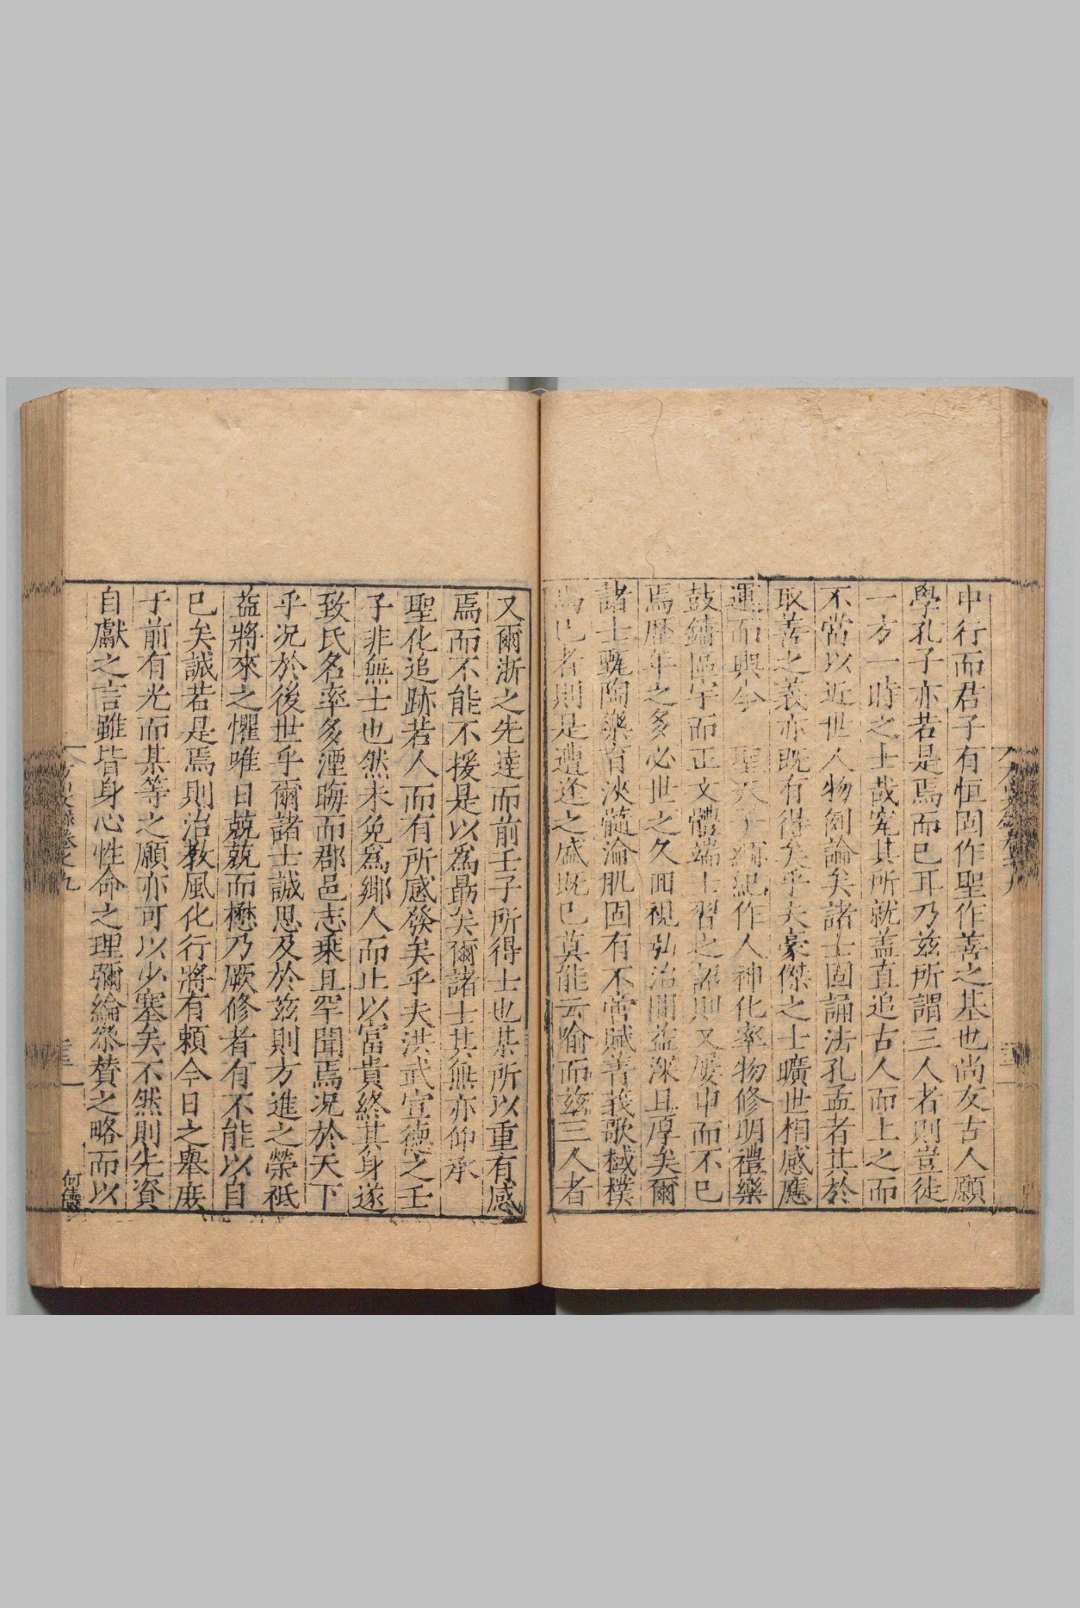 中行而君子有恒固作聖作善之基也尚友古人願
學孔子亦若是焉而已耳乃茲所謂三人者則豈徒
一方一時之士哉究其所就蓋直追古人而上之而
不當以近世人物例論矣諸士固誦法孔孟者其於
取善之義亦既有得矣乎夫豪傑之士曠世相感應
運而興今 聖天子 綱紀作人神化率物修明禮樂
鼓鑄區宇而正文體端士習之詔則又屢申而不已
焉歷年之多必世之久面視弘治圖益深且厚矣爾
諸士甄陶樂育浹髓淪肌固有不啻賦菁莪歌棫樸
焉已者則是遭逢之盛既已莫能云喻而茲三人者
又爾浙之先達而前壬子所得士也某所以重有感
焉而不能不援是以為勗矣爾諸士其無亦仰承
聖化追跡若人而有所感發矣乎夫洪武宣德之壬
子非無士也然未免為鄉人而止以富貴終其身遂
致氏名率多湮晦而郡邑志乘且罕聞焉况於天下
乎况於後世乎爾諸士誠思及於茲則方進之榮秪
益將來之懼唯日兢兢而懋乃厥修者有不能以自
已矣誠若是焉則治教風化行將有賴今日之舉庶
于前有光而某等之願亦可以少塞矣不然則先資
自獻之言雖皆身心性命之理彌綸叅贊之略而以
卷之九